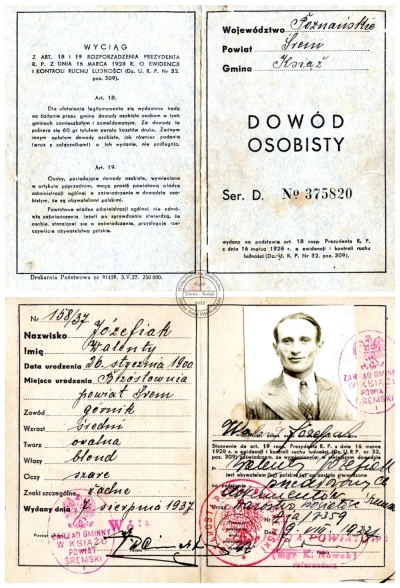 WYCIĄG
Z ART. 18 I 19 ROZPORZĄDZENIA PREZYDENTA
R. P. Z DNIA 16 MARCA 1928 R. O EWIDENCJI
I KONTROLI RUCHU LUDNOŚCI (Dz. U. R. P. Nr 32,
poz. 309).
Art. 18.
Dla ułatwienia legitymowania się wydawane będą
na żądanie przez gminy dowody osobiste osobom w tych
gminach zamieszkałym i zameldowanym. Za dowody te
pobiera się 60 gr tytułem zwrotu kosztów druku. Żadnym
innym opłatom dowody osobiste, jak również podania
(wraz z załącznikami) o ich wydanie, nie podlegają.
Art. 19.
Osoby, posiadające dowody osobiste, wymienione
w artykule poprzednim, mogą prosić powiatową władzę
administracji ogólnej o zaświadczenie w dowodzie oso-
bistym, że są obywatelami polskimi.
Powiatowa władza administracji ogólnej nie odmó-
wi zaświadczenia, jeżeli po sprawdzeniu stwierdzi, że
osobie, starającej się o zaświadczenie, przysługuje rze-
czywiście obywatelstwo polskie.
Drukarnia Państwowa nr 91429. 5.V.37. 250 000.
Województwo Poznańskie
Powiat Śrem
Gmina Książ
DOWÓD
OSOBISTY
Ser. D. № 375820
wydany na podstawie art. 18 rozp. Prezydenta R. P.
z dnia 16 marca 1928 r. o ewidencji i kontroli ruchu
ludności (Dz. U. R. P. Nr 32, poz. 309).
Nr 158/37
Nazwisko Józefiak
Imię Walenty
Data urodzenia 26 stycznia 1900
Miejsce urodzenia Brzostownia
powiat Śrem
Zawód górnik
Wzrost średni
Twarz owalna
Włosy blond
Oczy szare
Znaki szczególne żadne
Wydany dnia 7 sierpnia 1937
Wójt
ZARZĄD GMINNY
W KSIĄŻU
POWIAT
ŚREMSKI
ZARZĄD GMINNY
W KSIĄŻU
POWIAT
ŚREMSKI
Józefiak
Stosownie do art. 19 rozp. Prezydenta R. P. z dnia 16 marca
1928 r. o ewidencji i kontroli ruchu ludności (Dz. U. R. P. Nr 32,
poz. 309) zaświadczam, że wymieniony w niniejszym dowodzie
Walenty Józefiak
(mgr K. Nowak)
referendarz